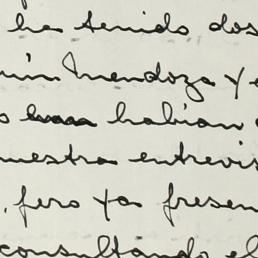 ha tenido dos
uín Mendoza y a
habian
nuestra entrevis
, pero ya presen
consultando el